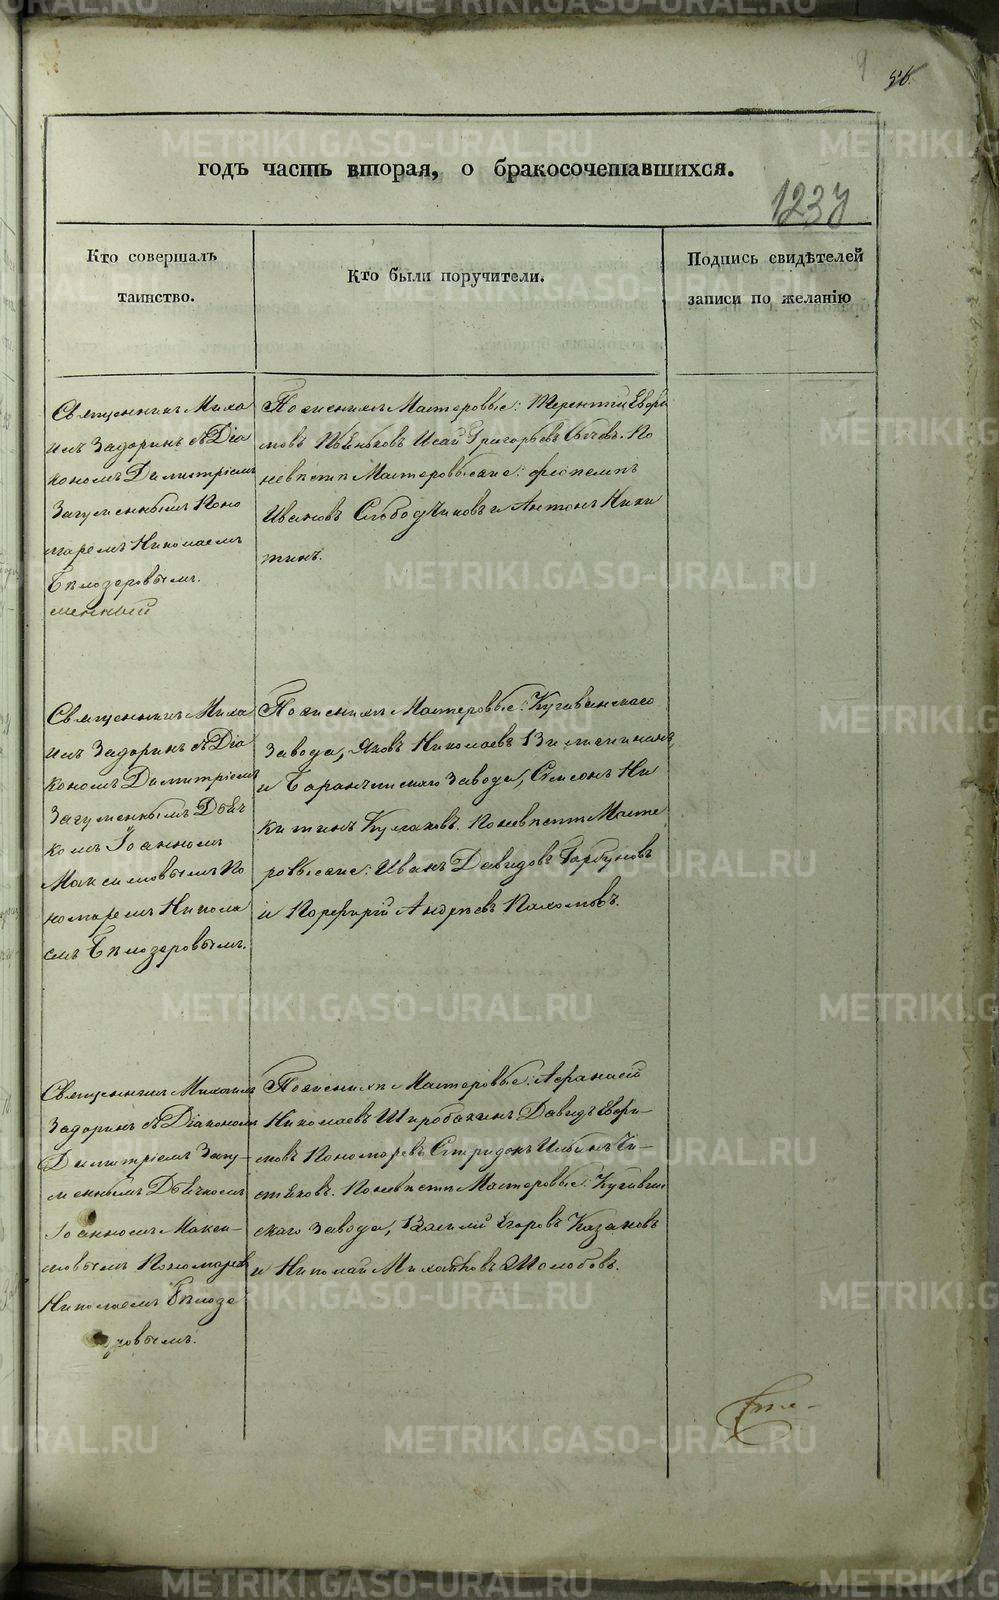 годъ часть вторая, о бракосочетавшихся.
1237
Кто совершалъ
таинство.
Кто были поручители.
Подпись свидѣтелей
записи по желанію
Священникъ Миха
илъ Задоринъ съ Діа
кономъ Димитріемъ
Загуменнымъ Поно
маремъ Николаемъ
Бѣлозеровымъ.
менный
По женихѣ Мастеровые: Терентій Евфи
мовъ Исай Григорьевъ По
невѣстѣ Мастеровые же:
Ивановъ Слободчиковъ и Антонъ Ники
тинъ.
Священникъ Миха
илъ Задоринъ съ Діа
кономъ Димитріемъ
Загуменнымъ Дьяч
комъ Іоанномъ
Максимовымъ По
номаремъ Никола
емъ Бѣлозеровымъ.
По женихѣ Мастеровые: Кушвинскаго
завода, Яковъ Николаевъ
и Баранчинскаго завода, Симеонъ Ни
китинъ Кулаковъ. По невѣстѣ Масте
ровые же: Иванъ Давидовъ Горбуновъ
и Порфирій Андреевъ Пахомовъ.
Священникъ Михаилъ
Задоринъ съ Діакономъ
Димитріемъ Загу-
меннымъ Дьячкомъ
Іоанномъ Макси-
мовымъ Пономаремъ
Николаемъ Бѣлозе
ровымъ.
По женихѣ Мастеровые: Афанасій
Николаевъ Широбокинъ Давидъ Евфи-
мовъ Пономаревъ Спиридонъ Ильинъ Чи-
стяковъ. По невѣстѣ Мастеровые: Кушвин
скаго завода, Василій Егоровъ Казаковъ
и Николай Михайловъ Молобовъ.
METRIKI.GASO-URAL.RU